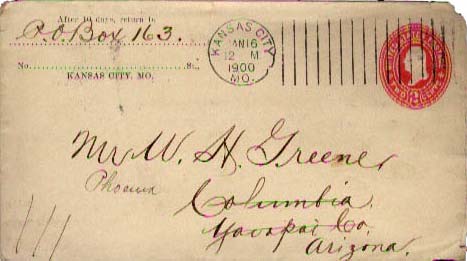 After 10 days, return to
P.O. Box 163.
No. St.,
KANSAS CITY, MO.
KANSAS CITY
JAN 16
12 M
1900
MO.
Mr W. H. Greene,
Phoenix
Columbia.
Yavapai Co,
Arizona.